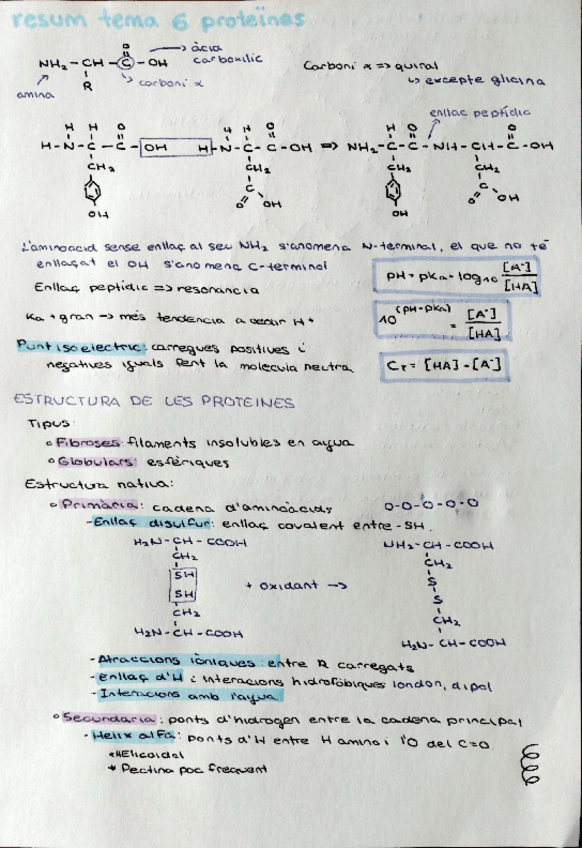 resum tema 6 proteïnes
O
NH₂ - CH - C - OH → àcid carboxílic
R
amina
carboni α
Carboni α => quiral
↳ excepte glicina
enllaç peptídic
H H O H H O H O O
H-N-C-C-OH H-N-C-C-OH => NH₂-C-C-NH-CH-C-OH
CH₂ CH₂ CH₂ CH₂
C C
OH O OH OH O OH
L'aminoàcid sense enllaç al seu NH₂ s'anomena N-terminal, el que no té
enllaçat el OH s'anomena C-terminal
pH = pKa + log₁₀ [A⁻]/[HA]
Enllaç peptídic => resonància
Ka + gran → més tendència a cedir H+
10^(pH-pKa) = [A⁻]/[HA]
Punt isoelectric: carregues positives i
negatives iguals fent la molecula neutra.
Cᴛ = [HA] + [A⁻]
ESTRUCTURA DE LES PROTEINES
Tipus:
Fibroses: filaments insolubles en aigua
Globulars: esfèriques
Estructura nativa:
Primària: cadena d'aminoàcids O-O-O-O-O
- Enllaç disulfur: enllaç covalent entre -SH.
H₂N-CH-COOH NH₂-CH-COOH
CH₂ CH₂
SH S
+ oxidant →
SH S
CH₂ CH₂
H₂N-CH-COOH H₂N-CH-COOH
- Atraccions iòniques: entre R carregats
- Enllaç d'H i interacions hidrofòbiques london, dipol
- Interacions amb l'aigua.
Secundaria: ponts d'hidrogen entre la cadena principal
- Hèlix alfa: ponts d'H entre H amino i l'O del C=O.
* Helicoidal
* Pectina poc frequent